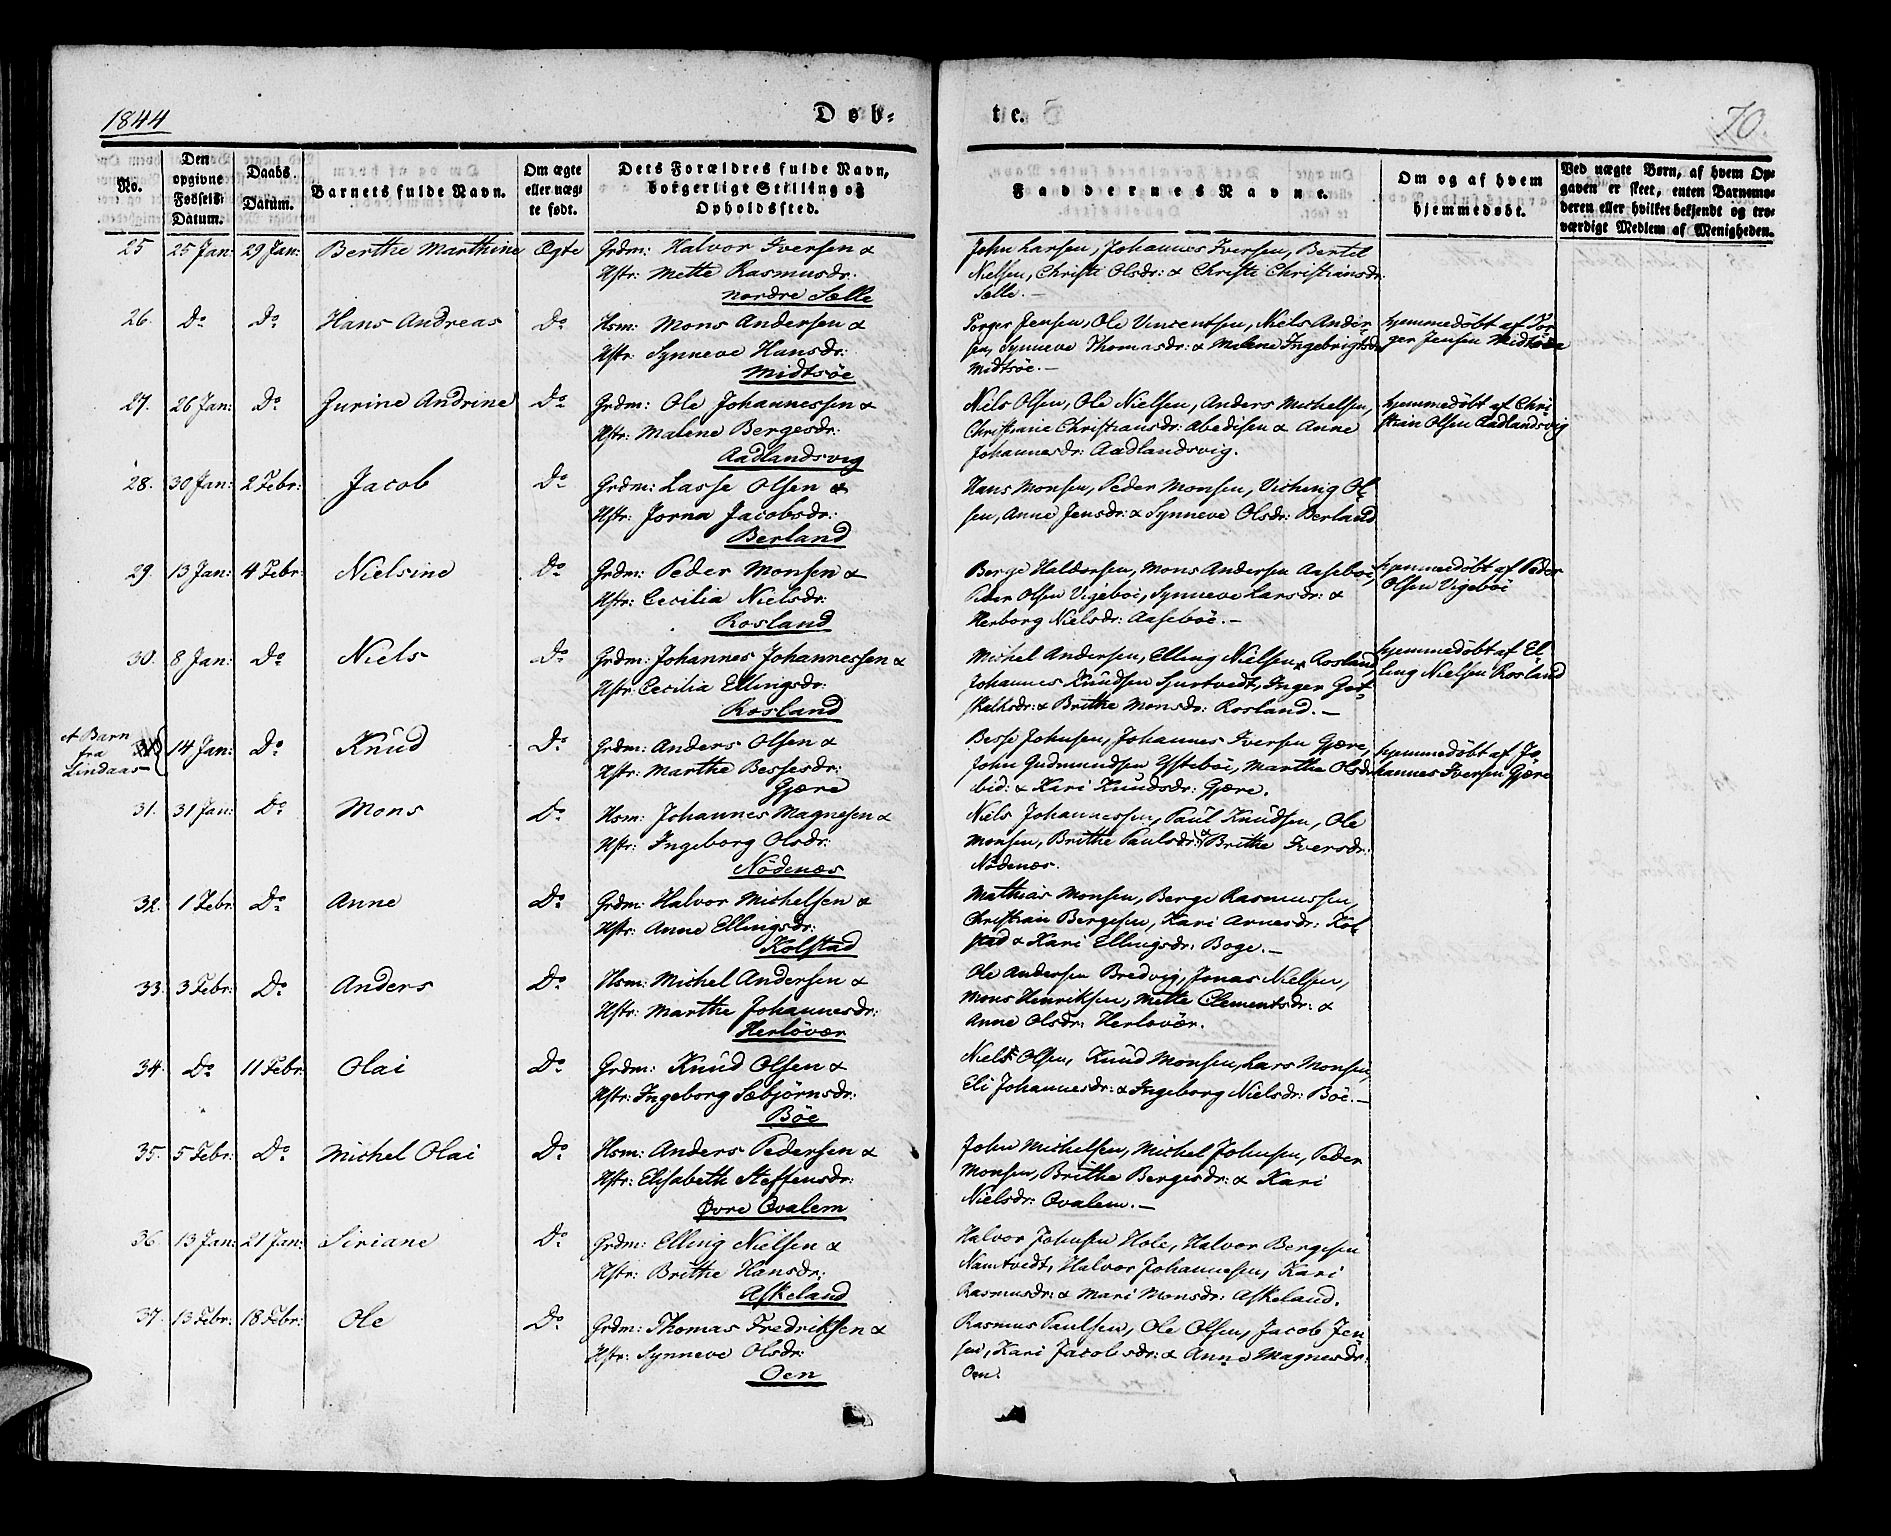 1844
Døb-
te.
70.
No.
Den
opgivne
Fødsels
Datum.
Daabs
Datum.
Barnets fulde Navn.
Om ægte
eller uægte
født.
Dets Forældres fulde Navn,
borgerligt Stilling og
Opholdssted.
Faddernes Navne.
Om og af hvem
hjemmedøbt.
Ved uægte Børn, af hvem Op-
gaven er skeet, enten Barnemo-
deren eller hvilket bekjendt og tro-
værdigt Medlem af Menigheden.
25 25 Jan: 29 Jan: Berthe Marthine Ægte Grdm: Halvor Iversen &
Hstr: Mette Rasmusdr:
nordre Sælle
John Larsen, Johannes Iversen, Bertel
Nielsen, Christi Olsdr: & Christi Christiansdr:
Sælle. —
26. Do Do Hans Andreas Do Hsm: Mons Andersen &
Hstr: Synneve Hansdr:
Midtsöe
Torger Jensen, Ole Vincentsen, Niels Ander-
sen, Synneve Thomasdr: & Malene Ingebrigtsdr:
Midtsöe. —
hjemmedöbt af Tor-
ger Jensen Midtsöe
27. 26 Jan: Do Gurine Andrine Do Grdm: Ole Johannessen &
Hstr: Malene Bergesdr:
Aadlandsvig
Niels Olsen, Ole Nielsen, Anders Michelsen,
Christiane Christiansdr: Abedisen & Anne
Johannesdr: Aadlandsvig.
hjemmedöbt af Chri-
stian Olsen Aadlandsvig
28. 30 Jan: 2 Febr: Jacob Do Grdm: Lasse Olsen &
Hstr: Jorna Jacobsdr:
Berland
Hans Monsen, Peder Monsen, Viching Ol-
sen, Anne Jensdr: & Synneve Olsdr: Berland
29. 13 Jan: 4 Febr: Nielsine Do Grdm: Peder Monsen &
Hstr: Cecilia Nielsdr:
Rosland
Berge Haldorsen, Mons Andersen Aaseboe,
Peder Olsen Vigeboe, Synneve Larsdr: &
Herborg Nielsdr: Aaseböe. —
hjemmedöbt af Peder
Olsen Vigeböe
30. 8 Jan: Do Niels Do Grdm: Johannes Johannessen &
Hstr: Cecilia Ellingsdr:
Rosland
Michel Andersen, Elling Nielsen Rosland,
Johannes Knudsen Sjurtvedt, Inger Got-
skalksdr: & Brithe Monsdr: Rosland. —
hjemmedöbt af El-
ling Nielsen Rosland
et Barn
fra
Lindaas
14 Jan: Do Knud Do Grdm: Anders Olsen &
Hstr: Marthe Bessesdr:
Gjære
Besse Johnsen, Johannes Iversen Gjære,
John Gudmundsen Ysteböe, Marthe Olsdr:
ibid: & Kari Knudsdr: Gjære.
hjemmedöbt af Jo-
hannes Iversen Gjære
31. 31 Jan: Do Mons Do Hsm: Johannes Magnesen &
Hstr: Ingeborg Olsdr:
Nödenæs
Niels Johannessen, Paul Knudsen, Ole
Monsen, Brithe Paulsdr: & Brithe Iversdr:
Nödenæs.
32. 1 Febr: Do Anne Do Grdm: Halvor Michelsen &
Hstr: Anne Ellingsdr:
Kolstad
Mathias Monsen, Berge Rasmussen,
Christian Bergesen, Kari Arnesdr: Kol-
stad & Kari Ellingsdr: Boge. —
33. 3 Febr: Do Anders Do Hsm: Michel Andersen &
Hstr: Marthe Johannesdr:
Herlövær
Ole Andersen Bredvig, Jonas Nielsen,
Mons Henriksen, Mette Clementsdr: &
Anne Olsdr: Herlovær.
34. Do 11 Febr: Olai Do Grdm: Knud Olsen &
Hstr: Ingeborg Sæbjörnsdr:
Böe
Niels Olsen, Knud Monsen, Lars Monsen,
Eli Johannesdr: & Ingeborg Nielsdr: Böe. —
35. 5 Febr: Do Michel Olai Do Hsm: Anders Pedersen &
Hstr: Elisabeth Steffensdr:
Øvre Qvalem
John Michelsen, Michel Johnsen, Peder
Monsen, Brithe Bergesdr: & Kari
Nielsdr: Qvalem. —
36. 13 Jan: 21 Jan: Siriane Do Grdm: Elling Nielsen &
Hstr: Brithe Hansdr:
Askeland
Halvor Johnsen Hole, Halvor Bergesen
Namtvedt, Halvor Johannesen, Kari
Rasmusdr: & Mari Monsdr: Askeland.
37. 13 Febr: 18 Febr: Ole Do Grdm: Thomas Fredriksen &
Hstr: Synneve Olsdr:
Oen
Rasmus Paulsen, Ole Olsen, Jacob Jen-
sen, Kari Jacobsdr: & Anne Magnesdr:
Oen.